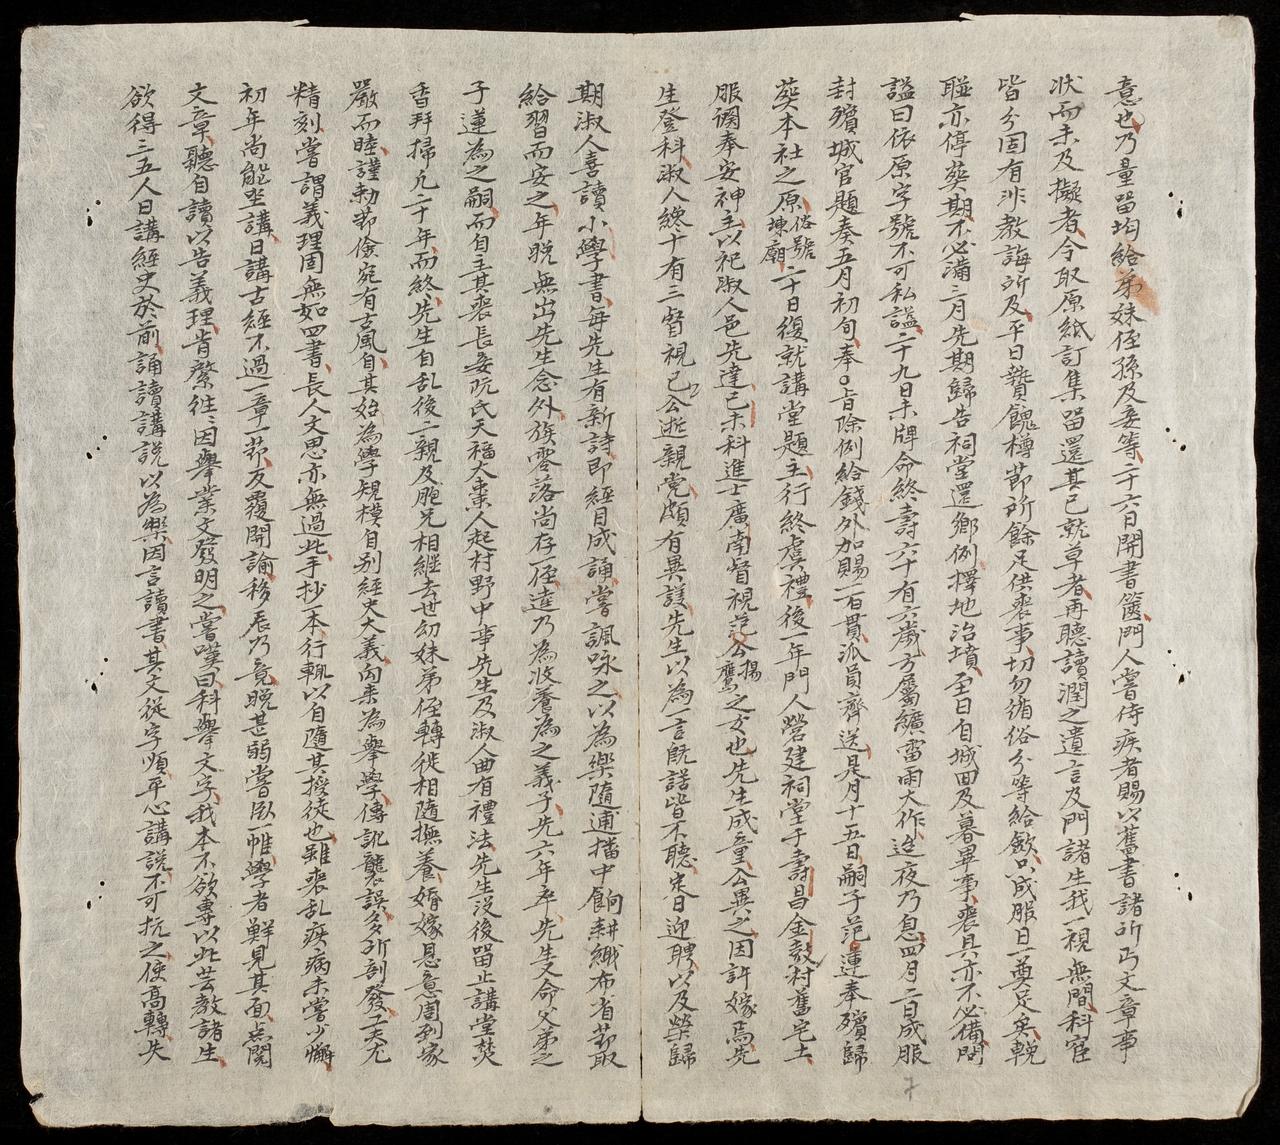 意也乃量留均給弟妹侄孫及妾等二十六日開書篋門人嘗侍疾者賜以舊書諸所丐文章事
状而未及擬者令取原紙訂集留還其已就草者再聽讀潤之遺言及門諸生我一視無間科宦
皆分固有非教誨所及平日贄餽樽節所餘足供喪事切勿循俗分等給斂只成服日一奠足矣輓
聯亦停葬期不必滿三月先期歸告祠堂還鄉例擇地治墳至日自城田及暮畢事喪具亦不必備問
謚曰依原字號不可私謚二十九日未牌命終壽六十有六歲方屬纊雷雨大作迨夜乃息四月二日成服
封殯城官題奏五月初旬奉旨除例給錢外加賜一百貫派員齊送是月十五日嗣子范蓮奉殯歸
葬本社之原俗號堜廟二十日復就講堂題主行終虞禮後一年門人營建祠堂于壽昌金鼓村舊宅土
服闋奉安神主以祀淑人邑先達己未科進士廣南督視范公揚鷹之女也先生成童公異之因許嫁焉先
生登科淑人纔十有三督視已公逝親党頗有異議先生以為一言既諾皆不聽定日迎聘以及榮歸
期淑人喜讀小學書每先生有新詩即經目成誦嘗諷咏之以為樂隨逋播中餉耕織布省節取
給習而安之年晚無出先生念外族零落尚存一侄達乃為收養為之義子先六年卒先生又命父弟之
子蓮為之嗣而自主其喪長妾阮氏天福大棗人起村野中事先生及淑人曲有禮法先生沒後留止講堂焚
香拜掃凡二十年而終先生自乱後二親及胞兄相継去世幼妹弟侄轉徙相隨撫養婚嫁恩意周到家
嚴而睦謹勅節儉宛有古風自其始為學規模自別經史大義向来為舉學傳訛襲誤多所剖發工夫尤
精刻嘗謂義理固無如四書長人文思亦無過此手抄一本行輒以自隨其授徒也雖喪乱疾病未嘗少懈
初年尚能坐講日講古經不過一章一節反覆開諭移辰乃竟晚甚弱嘗臥一帷學者鮮見其面点閱
文章聽自讀以告義理肯綮往〻因舉業文發明之嘗嘆曰科舉文字我本不欲專以此芸教諸生
欲得三五人日講經史於前誦讀講説以為樂因言讀書其文從字順平心講説不可抗之使高轉失